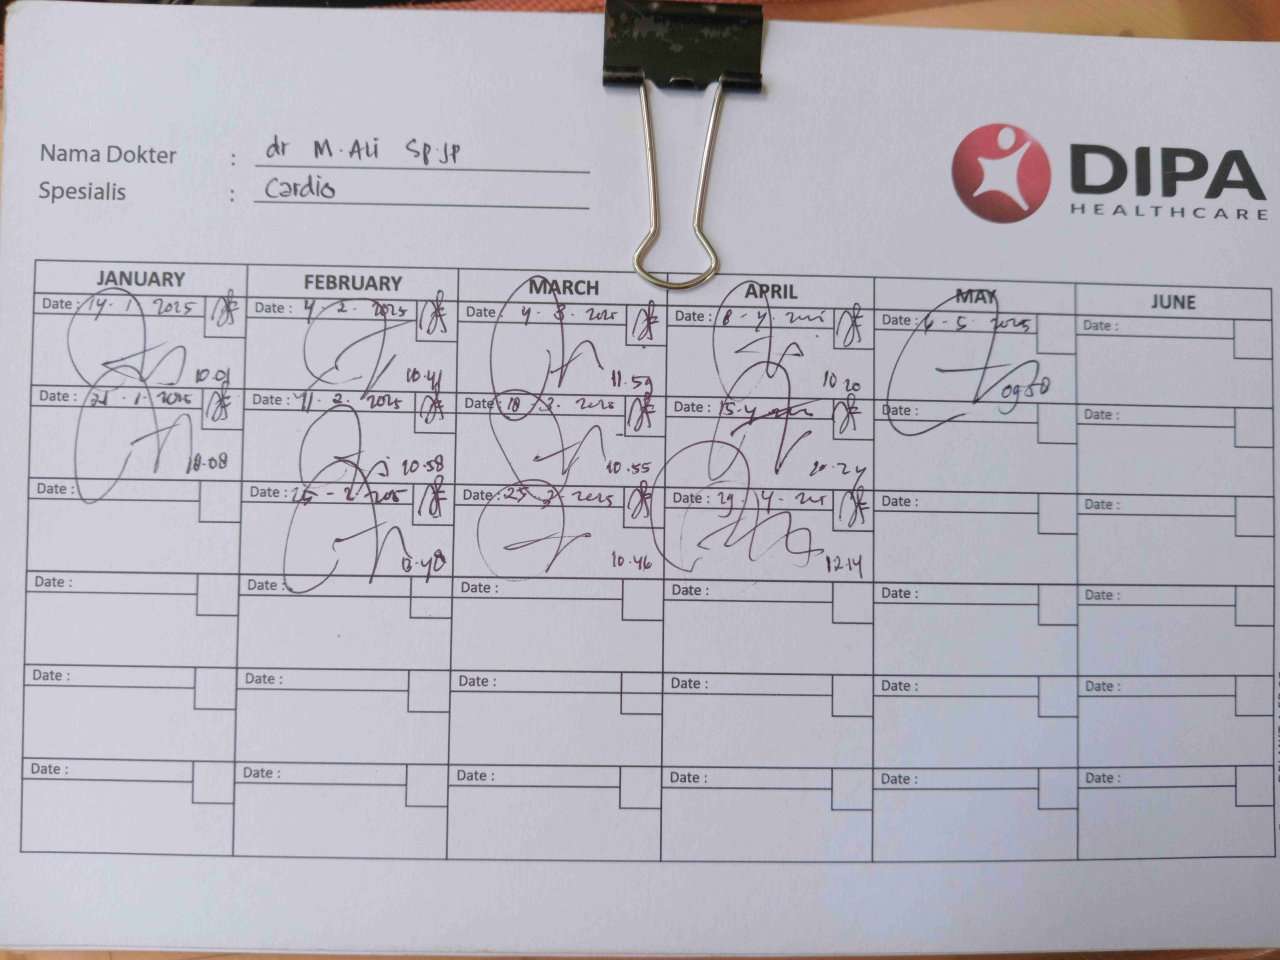 Nama Dokter : dr M. Ali Sp.JP
Spesialis : Cardio
DIPA
HEALTHCARE
JANUARY FEBRUARY MARCH APRIL MAY JUNE
Date : 14 - 1 2025 Date : 4 - 2 - 2025 Date : 4 - 3 - 2025 Date : 8 - 4 - Date : 6 - 5 - 2025 Date :
10.01 10.41 11.59 10 20 09 50
Date : 21 - 1 - 2025 Date : 11 - 2 - 2025 Date : 18 - 3 - 2025 Date : 15 - 4 Date : Date :
10.58 10.55 10.24
Date : Date : 25 - 2 - Date : 25 - 3 - 2025 Date : 29 - 4 - Date : Date :
10.46 12.14
Date : Date : Date : Date : Date : Date :
Date : Date : Date : Date : Date : Date :
Date : Date : Date : Date : Date : Date :